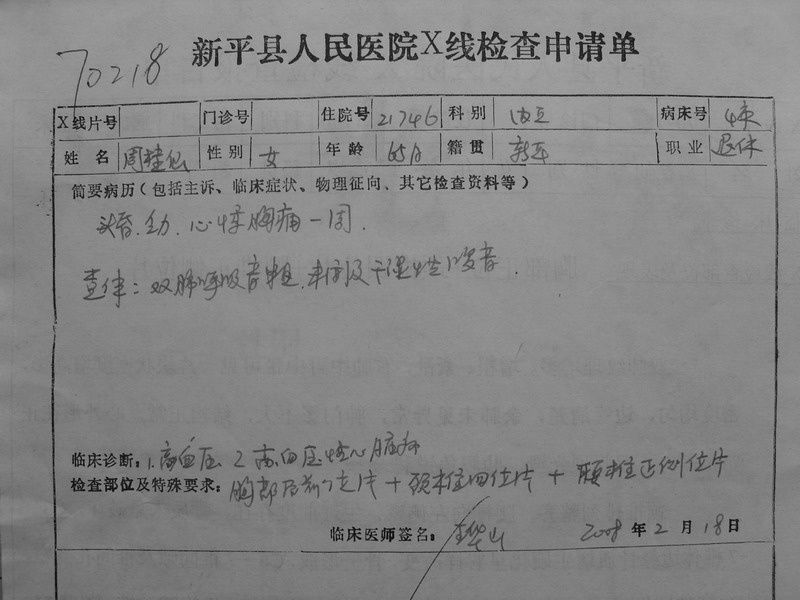 新平县人民医院X线检查申请单
70218
X线片号 门诊号 住院号 21746 科别 内五 病床号
姓名 周桂仙 性别 女 年龄 65岁 籍贯 新平 职业 退休
简要病历(包括主诉、临床症状、物理征向、其它检查资料等)
头昏、心悸胸痛一周.
查体:双肺呼吸音粗.未闻及干湿性啰音.
临床诊断:1.高血压 2 高血压性心脏病
检查部位及特殊要求:胸部后前位片+颈椎四位片+腰椎正侧位片
临床医师签名: 2008年2月18日